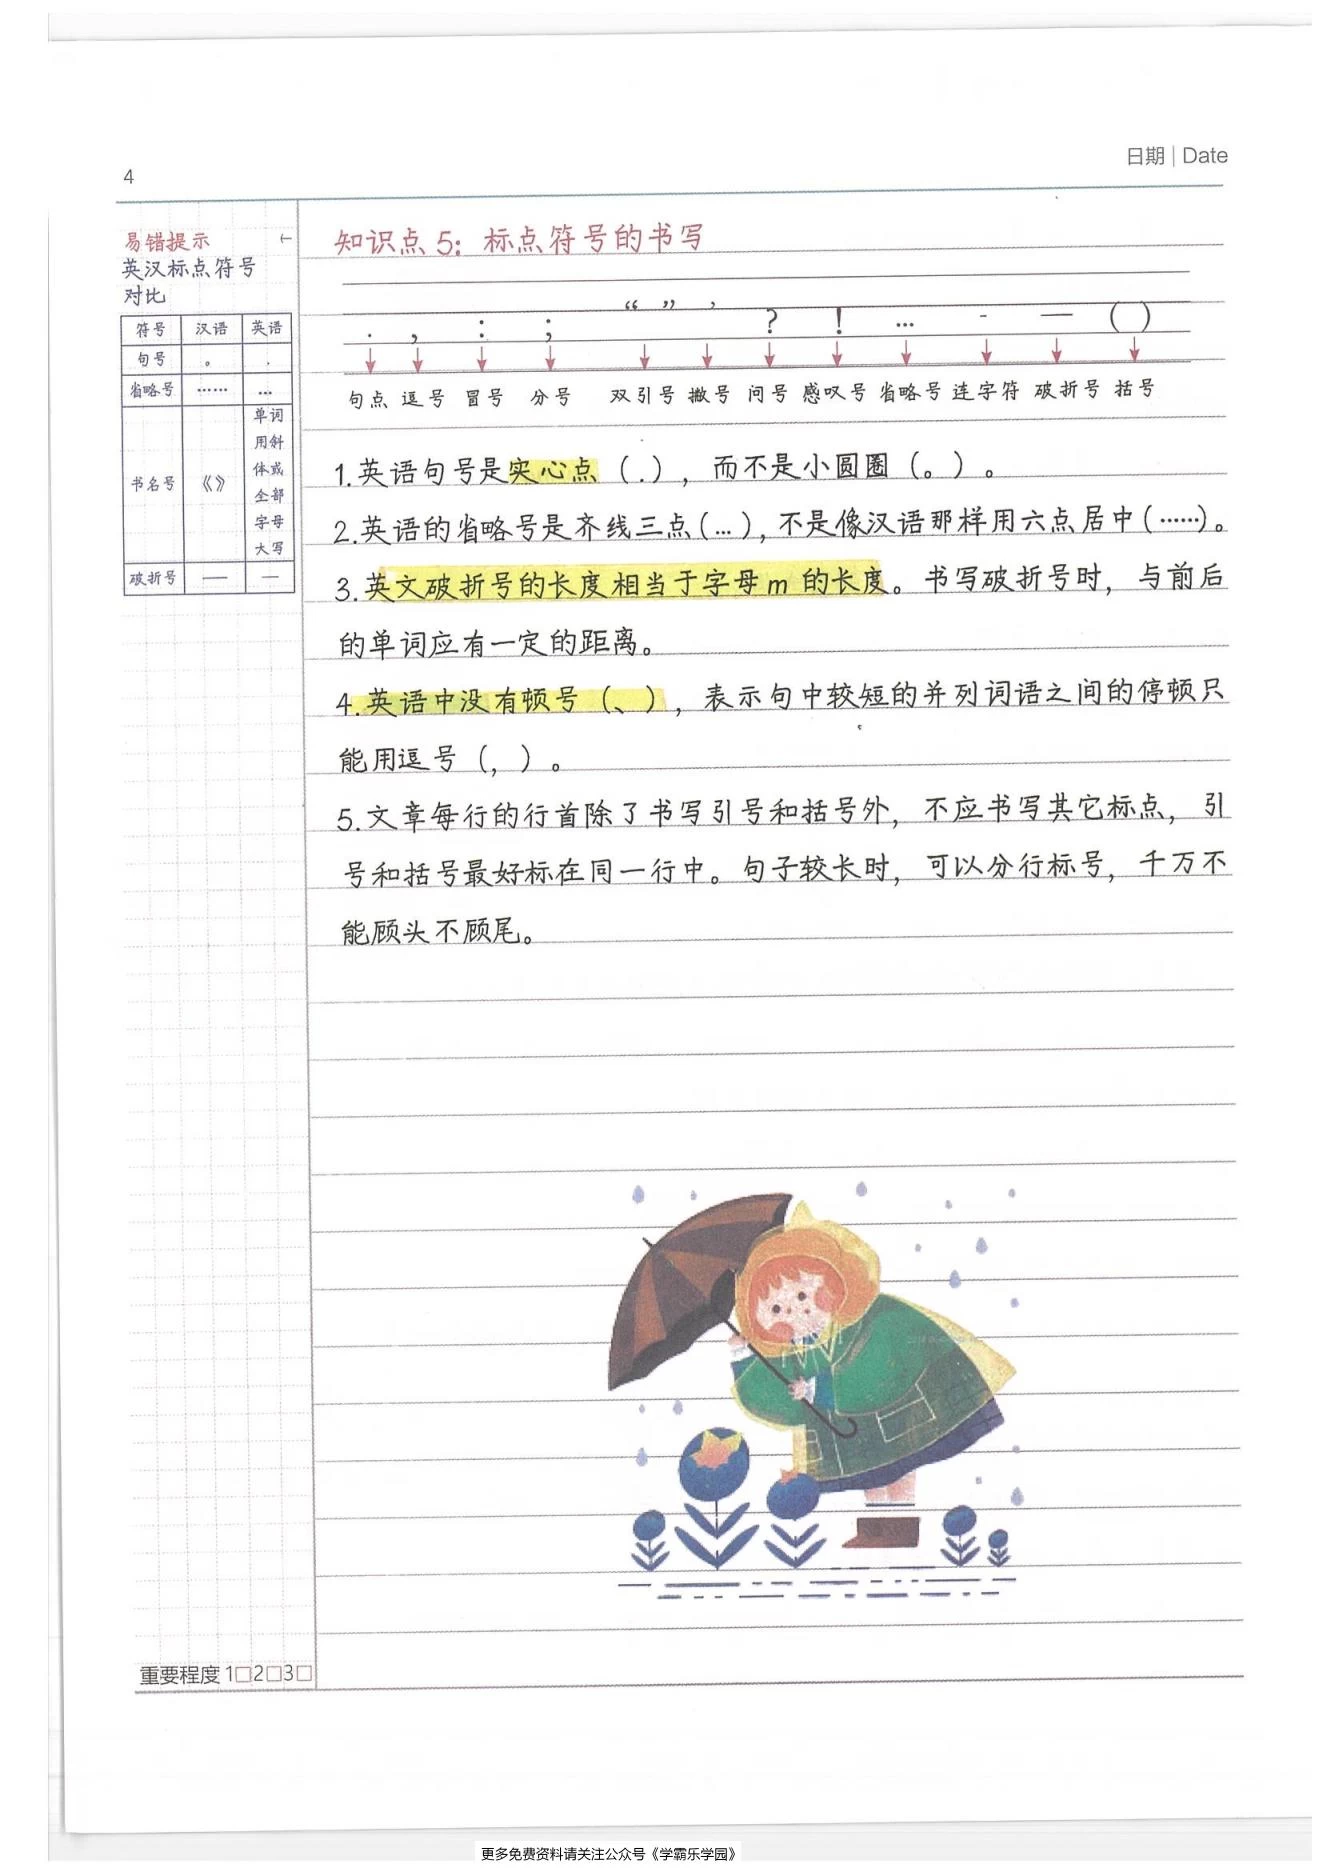 日期 | Date
4
易错提示 ←
英汉标点符号
对比
符号 汉语 英语
句号 。 .
省略号 …… …
书名号 《》 单词
用斜
体或
全部
字母
大写
破折号 —— —
知识点 5：标点符号的书写
. , : ; “ ” ’ ? ! … - — ( )
句点 逗号 冒号 分号 双引号 撇号 问号 感叹号 省略号 连字符 破折号 括号
1.英语句号是实心点（.），而不是小圆圈（。）。
2.英语的省略号是齐线三点(…)，不是像汉语那样用六点居中(……)。
3.英文破折号的长度相当于字母 m 的长度。书写破折号时，与前后
的单词应有一定的距离。
4.英语中没有顿号（、），表示句中较短的并列词语之间的停顿只
能用逗号（，）。
5.文章每行的行首除了书写引号和括号外，不应书写其它标点，引
号和括号最好标在同一行中。句子较长时，可以分行标号，千万不
能顾头不顾尾。
重要程度 1□2□3□
更多免费资料请关注公众号《学霸乐学园》